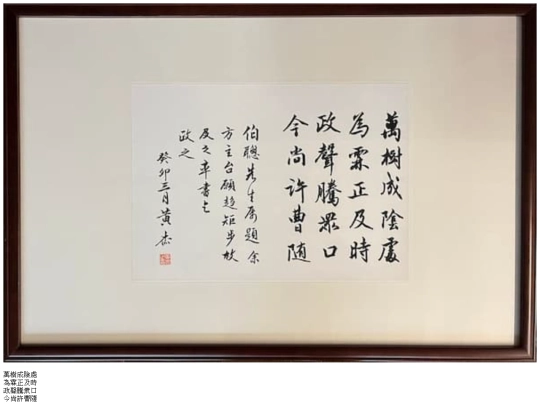 萬樹成陰處
為霖正及時
政聲騰眾口
今尚許曹隨
伯聰先生屬題余
方主台願趋矩步故
及之率書乞
政之
癸卯三月黃杰
萬樹成陰處
為霖正及時
政聲騰眾口
今尚許曹隨